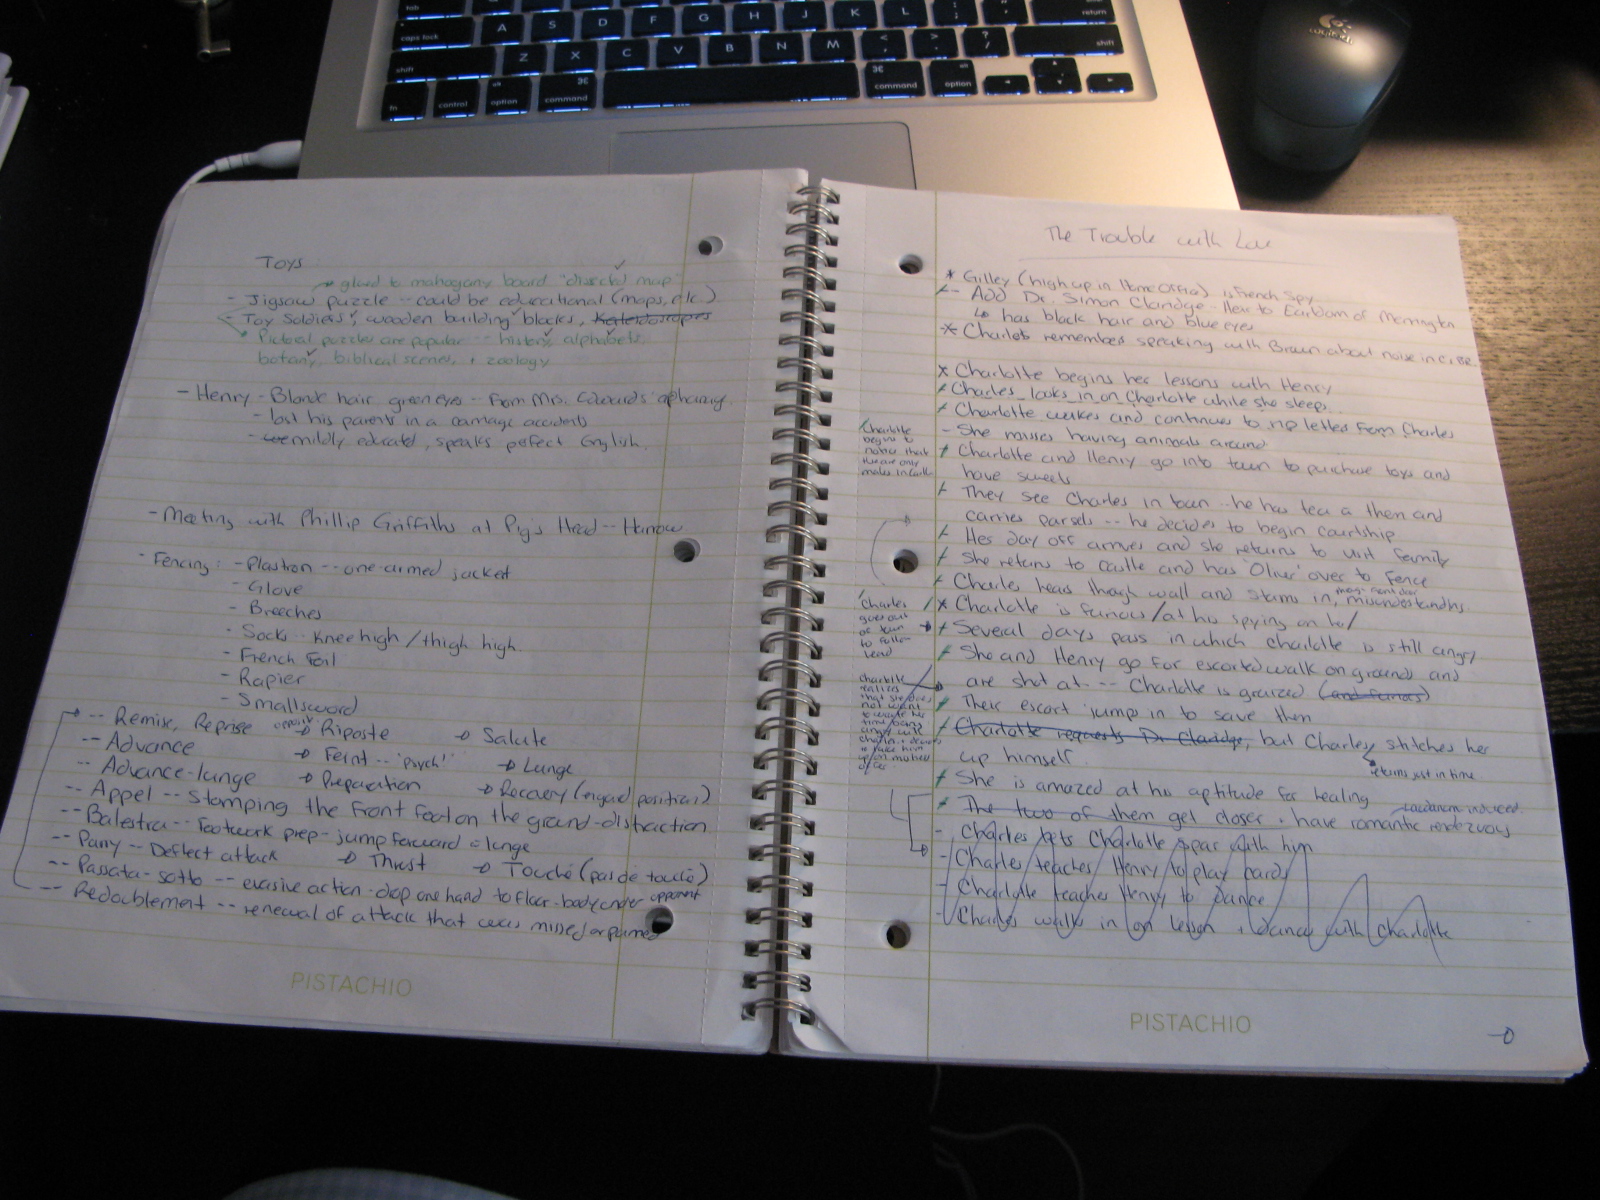 tab
caps lock
A S D F G H J K L ; '
return
shift
Z X C V B N M < , > . ? /
shift
fn
control
alt option
⌘ command
⌘ command
alt option
Logitech
Toys
glued to mahogany board "dissected map"
- Jigsaw puzzle -- could be educational (maps, etc.)
- Toy Soldiers, wooden building blocks, Kaleidoscopes
Pictoral puzzles are popular -- history, alphabets,
botany, biblical scenes, + zoology
- Henry - Blonde hair, green eyes -- From Mrs. Edwards' orphanary
- lost his parents in a carriage accidents
- mildly educated, speaks perfect English.
- Meeting with Phillip Griffiths at Pig's Head -- Harrow
- Fencing: - Plastron -- one-armed jacket
- Glove
- Breeches
- Socks - knee high / thigh high.
- French Foil
- Rapier
- Smallsword
-- Remise, Reprise → Riposte → Salute
-- Advance → Feint -- 'psych!' → Lunge
-- Advance-lunge → Preparation → Recovery (engard position)
-- Appel -- Stomping the front foot on the ground - distraction
-- Balestra -- footwork prep - jump forward = lunge
-- Parry -- Deflect attack → Thrust → Touché (pas de touché)
-- Passata-sotto -- evasive action - drop one hand to floor - body under opponent
-- Redoublement -- renewal of attack that was missed or parried
PISTACHIO
The Trouble with Love
* Gilley (high up in Home Office) is French Spy
-- Add Dr. Simon Claridge - Heir to Earldom of Mornington
↳ has black hair and blue eyes
* Charles remembers speaking with Braun about noise in
* Charlotte begins her lessons with Henry
Charles looks in on Charlotte while she sleeps.
Charlotte wakes and continues to rip letters from Charles
- She misses having animals around
Charlotte
begins to
notice that
there are only
males in castle
Charlotte and Henry go into town to purchase toys and
have sweets
They see Charles in town -- he has tea them and
carries parcels -- he decides to begin courtship
Her day off arrives and she returns to visit family
She returns to castle and has 'Oliver' over to fence
Charles hears through wall and storms in, misunderstanding
Charles
goes out
of town
to follow
lead
* Charlotte is furious / at his spying on her
Several days pass in which Charlotte is still angry
She and Henry go for escorted walk on grounds and
are shot at -- Charlotte is grazed (and faints)
Charlotte
realizes
that she does
not want
to
time being
angry with
Their escort jump in to save them
Charlotte requests Dr. Claridge, but Charles stitches her
up himself
returns just in time
She is amazed at his aptitude for healing
laudanum induced
The two of them get closer + have romantic rendezvous
- Charles lets Charlotte spar with him
- Charles teaches Henry to play cards
- Charlotte teaches Henry to dance
- Charles walks in on lesson + dances with Charlotte
PISTACHIO